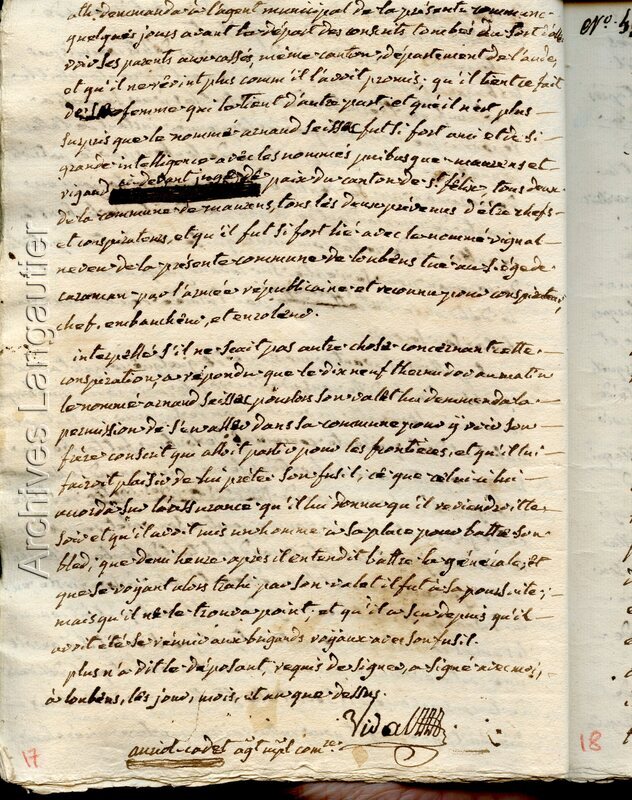 alla demanda a l'agent municipal de la présente commune
quelques jours avant le départ des conscrits tombés du sort d'aller
voir ses parents aux cassés, même canton, département de l'aude,
et qu'il ne revint plus comme il l'avoit promis; qu'il tient ce fait
de sa femme qui le tient d'autre part, et que il n'est plus
surpris que le nommé arnaud seisses fut si fort ami et de si
grande intelligence avec les nommés maurens et
rigaud paix du canton de st félix, tous deux
de la commune de maurens, tous les deux prévenus d'être chefs
et conspirateurs, et qu'il fut si fort lié avec le nommé vignal
neveu de la présente commune de loubens tué au siége de
caraman par l'armée républicaine et reconnu pour conspirateur,
chef, embaucheur, et enroleur.
interpellé s'il ne scait pas autre chose concernant cette
conspiration, a répondu que le dix neuf thermidor au matin
le nommé arnaud seisses pour lors son valet lui demanda la
permission de s'en aller dans sa commune pour y voir son
frère conscrit qui alloit partir pour les frontières, et qu'il lui
fairoit plaisir de lui prêter son fusil; ce que celui ci lui
accorda sur l'assurance qu'il lui donna qu'il reviendroit le
soir et qu'il avoit mis un homme a sa place pour battre son
bled, que demi heure après il entendit battre la générale, et
que se voyant alors trahi par son valet il fut a sa poursuite;
mais qu'il ne le trouva point, et qu'il a sçu depuis qu'il
avoit été se réunir aux brigands royaux avec son fusil.
plus n'a dit le déposant, requis de signer, a signé avec moi,
à loubens, les jour, mois, et an que dessus.
Vidal
auriol cadet agt mpl
17
18
N°.
Archives Lartigautier